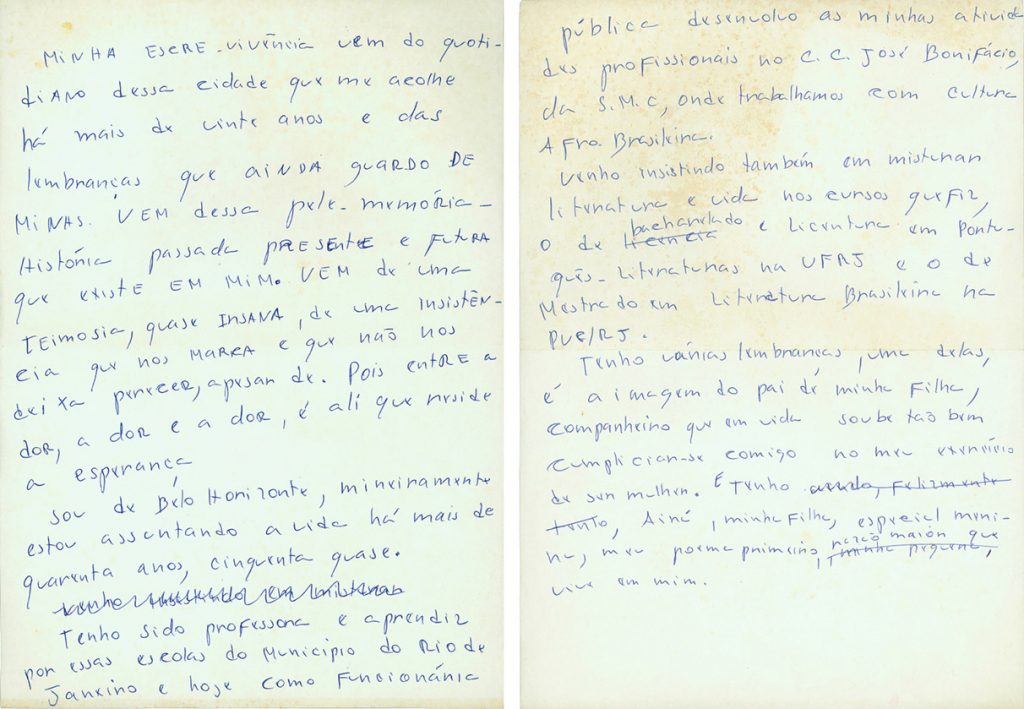 MINHA ESCRE-vivência vem do quoti-
diANO dessa cidade que me acolhe
há mais de vinte anos e das
lembranças que AINDA guARDO DE
MINAS. VEM dessa pele-memória-
História passada PRESENTE e FUTURA
que existe EM MIM. VEM de uma
TEimosia, quase INSANA, de uma insistên-
cia que nos MARCA e que não nos
deixa perecer, apesar de. Pois entRE a
dor, a dor e a dor, é ali que reside
a esperança
Sou de Belo Horizonte, mineiramente
estou assentando a vida há mais de
quarenta anos, cinquenta quase.
venho insistindo em misturar
Tenho sido professora e aprendiz
por essas escolas do Município do Rio de
Janeiro e hoje como Funcionária
pública desenvolvo as minhas ativida
des profissionais no C.C. José Bonifácio,
da S.M.C, onde trabalhamos com cultura
AFro. Brasileira.
Venho insistindo também em misturar
literatura e vida nos cursos que fiz,
bacharelado
o de e Licentura em Portu-
guês-Literaturas na UFRJ e o de
Mestrado em Literatura Brasileira na
PUC/RJ.
Tenho várias lembranças, uma delas,
é a imagem do pai de minha Filha,
companheiro que em vida soube tão bem
cumpliciar-se comigo no meu exercício
de ser mulher. E Tenho ainda, Felizmente
tenho, Ainá, minha Filha, especial meni-
na, meu poema primeiro, maior que
minha pequena,
vive em mim.